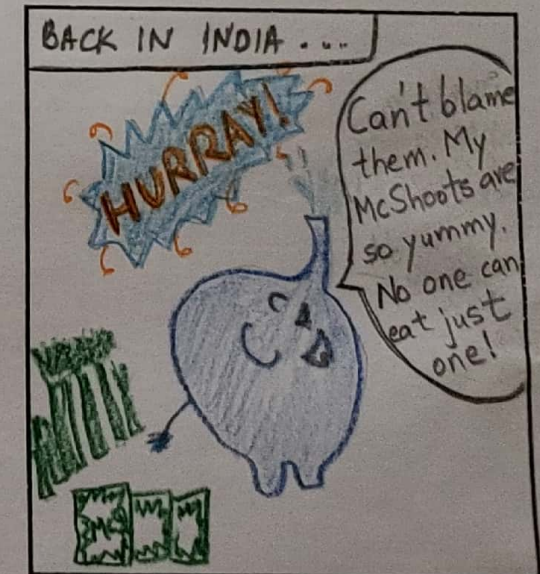 BACK IN INDIA ....
HURRAY!
Can't blame
them. My
McShoots are
so yummy.
No one can
eat just
one!